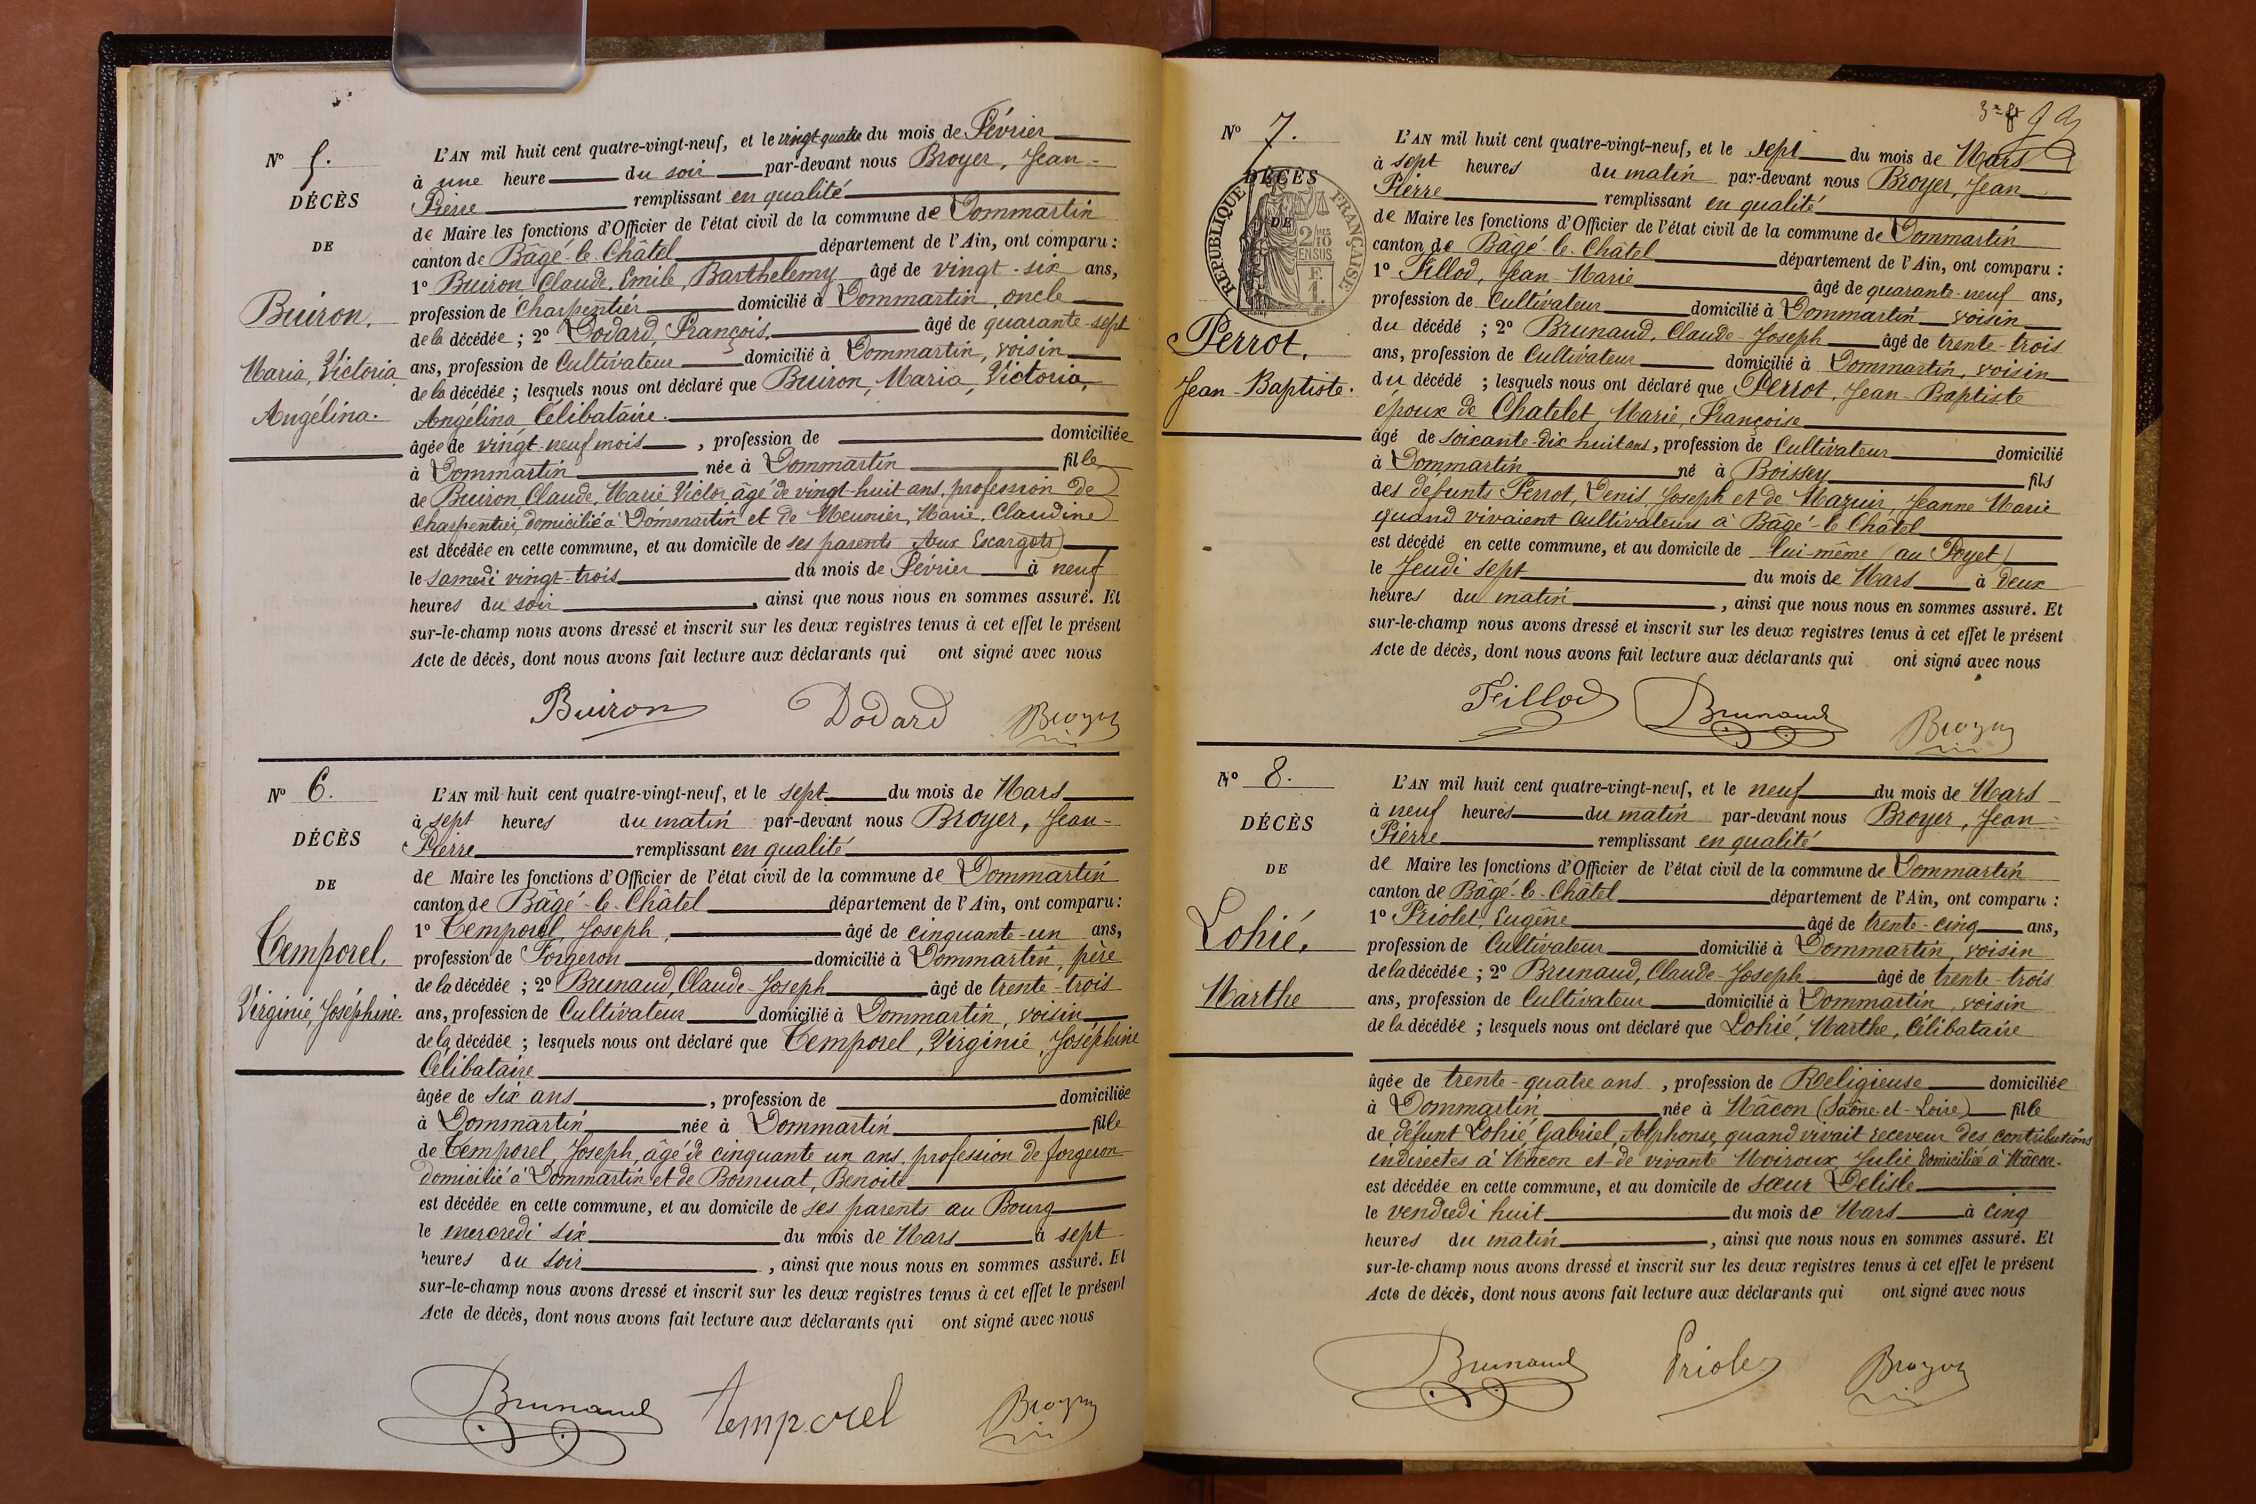 Nº 5.
DÉCÈS
DE
Buiron,
Maria, Victoria
Angélina.
L'AN mil huit cent quatre-vingt-neuf, et le vingt quatre du mois de Février
à une heure du soir par-devant nous Broyer, Jean-
Pierre remplissant en qualité
de Maire les fonctions d'Officier de l'état civil de la commune de Dommartin
canton de Bâgé-le-Châtel département de l'Ain, ont comparu :
1º Buiron Claude, Emile, Barthelemy âgé de vingt-six ans,
profession de Charpentier domicilié à Dommartin, oncle
de la décédée ; 2º Dodard, François, âgé de quarante-sept
ans, profession de Cultivateur domicilié à Dommartin, voisin
de la décédée ; lesquels nous ont déclaré que Buiron, Maria, Victoria,
Angélina Célibataire.
âgée de vingt-neuf mois, profession de domiciliée
à Dommartin née à Dommartin fille
de Buiron, Claude, Marie Victor âgé de vingt-huit ans, profession de
Charpentier, domicilié à Dommartin et de Meunier, Marie, Claudine
est décédée en cette commune, et au domicile de ses parents Aux Escargots)
le samedi vingt-trois du mois de Février à neuf
heures du soir, ainsi que nous nous en sommes assuré. Et
sur-le-champ nous avons dressé et inscrit sur les deux registres tenus à cet effet le présent
Acte de décès, dont nous avons fait lecture aux déclarants qui ont signé avec nous
Buiron Dodard Broyer
Nº 6.
DÉCÈS
DE
Temporel,
Virginie, Joséphine.
L'AN mil huit cent quatre-vingt-neuf, et le sept du mois de Mars
à sept heures du matin par-devant nous Broyer, Jean-
Pierre remplissant en qualité
de Maire les fonctions d'Officier de l'état civil de la commune de Dommartin
canton de Bâgé-le-Châtel département de l'Ain, ont comparu :
1º Temporel, Joseph, âgé de cinquante-un ans,
profession de Forgeron domicilié à Dommartin, père
de la décédée ; 2º Brunaud, Claude-Joseph âgé de trente-trois
ans, profession de Cultivateur domicilié à Dommartin, voisin
de la décédée ; lesquels nous ont déclaré que Temporel, Virginie, Joséphine
Célibataire
âgée de six ans, profession de domiciliée
à Dommartin née à Dommartin fille
de Temporel, Joseph, âgé de cinquante un ans, profession de forgeron
domicilié à Dommartin et de Bornuat, Benoite
est décédée en cette commune, et au domicile de ses parents au Bourg
le mercredi six du mois de Mars à sept
heures du soir, ainsi que nous nous en sommes assuré. Et
sur-le-champ nous avons dressé et inscrit sur les deux registres tenus à cet effet le présent
Acte de décès, dont nous avons fait lecture aux déclarants qui ont signé avec nous
Brunaud Temporel Broyer
Nº 7.
DÉCÈS
DE
RÉPUBLIQUE FRANÇAISE
Perrot,
Jean-Baptiste.
L'AN mil huit cent quatre-vingt-neuf, et le sept du mois de Mars
à sept heures du matin par-devant nous Broyer, Jean
Pierre remplissant en qualité
de Maire les fonctions d'Officier de l'état civil de la commune de Dommartin
canton de Bâgé-le-Châtel département de l'Ain, ont comparu :
1º Fillod, Jean-Marie âgé de quarante-neuf ans,
profession de Cultivateur domicilié à Dommartin voisin
du décédé ; 2º Brunaud, Claude-Joseph âgé de trente-trois
ans, profession de Cultivateur domicilié à Dommartin, voisin
du décédé ; lesquels nous ont déclaré que Perrot, Jean-Baptiste
époux de Chatelet, Marie, Françoise
âgé de soixante-dix huit ans, profession de Cultivateur domicilié
à Dommartin né à Boissey fils
des défunts Perrot, Denis Joseph et de Mazuir Jeanne Marie
quand vivaient Cultivateurs à Bâgé-le Châtel
est décédé en cette commune, et au domicile de lui-même (au Poyet)
le Jeudi sept du mois de Mars à deux
heures du matin, ainsi que nous nous en sommes assuré. Et
sur-le-champ nous avons dressé et inscrit sur les deux registres tenus à cet effet le présent
Acte de décès, dont nous avons fait lecture aux déclarants qui ont signé avec nous
Fillod Brunaud Broyer
Nº 8.
DÉCÈS
DE
Lohié,
Marthe
L'AN mil huit cent quatre-vingt-neuf, et le neuf du mois de Mars
à neuf heures du matin par-devant nous Broyer, Jean-
Pierre remplissant en qualité
de Maire les fonctions d'Officier de l'état civil de la commune de Dommartin
canton de Bâgé-le-Châtel département de l'Ain, ont comparu :
1º Priolet, Eugène âgé de trente-cinq ans,
profession de Cultivateur domicilié à Dommartin, voisin
de la décédée ; 2º Brunaud, Claude-Joseph âgé de trente-trois
ans, profession de Cultivateur domicilié à Dommartin, voisin
de la décédée ; lesquels nous ont déclaré que Lohié, Marthe, Célibataire
âgée de trente-quatre ans, profession de Religieuse domiciliée
à Dommartin née à Mâcon (Saône-et-Loire) fille
de défunt Lohié Gabriel, Alphonse, quand vivait receveur des contributions
indirectes à Mâcon et de vivante Moiroux, Julie domiciliée à Mâcon.
est décédée en cette commune, et au domicile de sœur Delisle
le vendredi huit du mois de Mars à cinq
heures du matin, ainsi que nous nous en sommes assuré. Et
sur-le-champ nous avons dressé et inscrit sur les deux registres tenus à cet effet le présent
Acte de décès, dont nous avons fait lecture aux déclarants qui ont signé avec nous
Brunaud Priolet Broyer